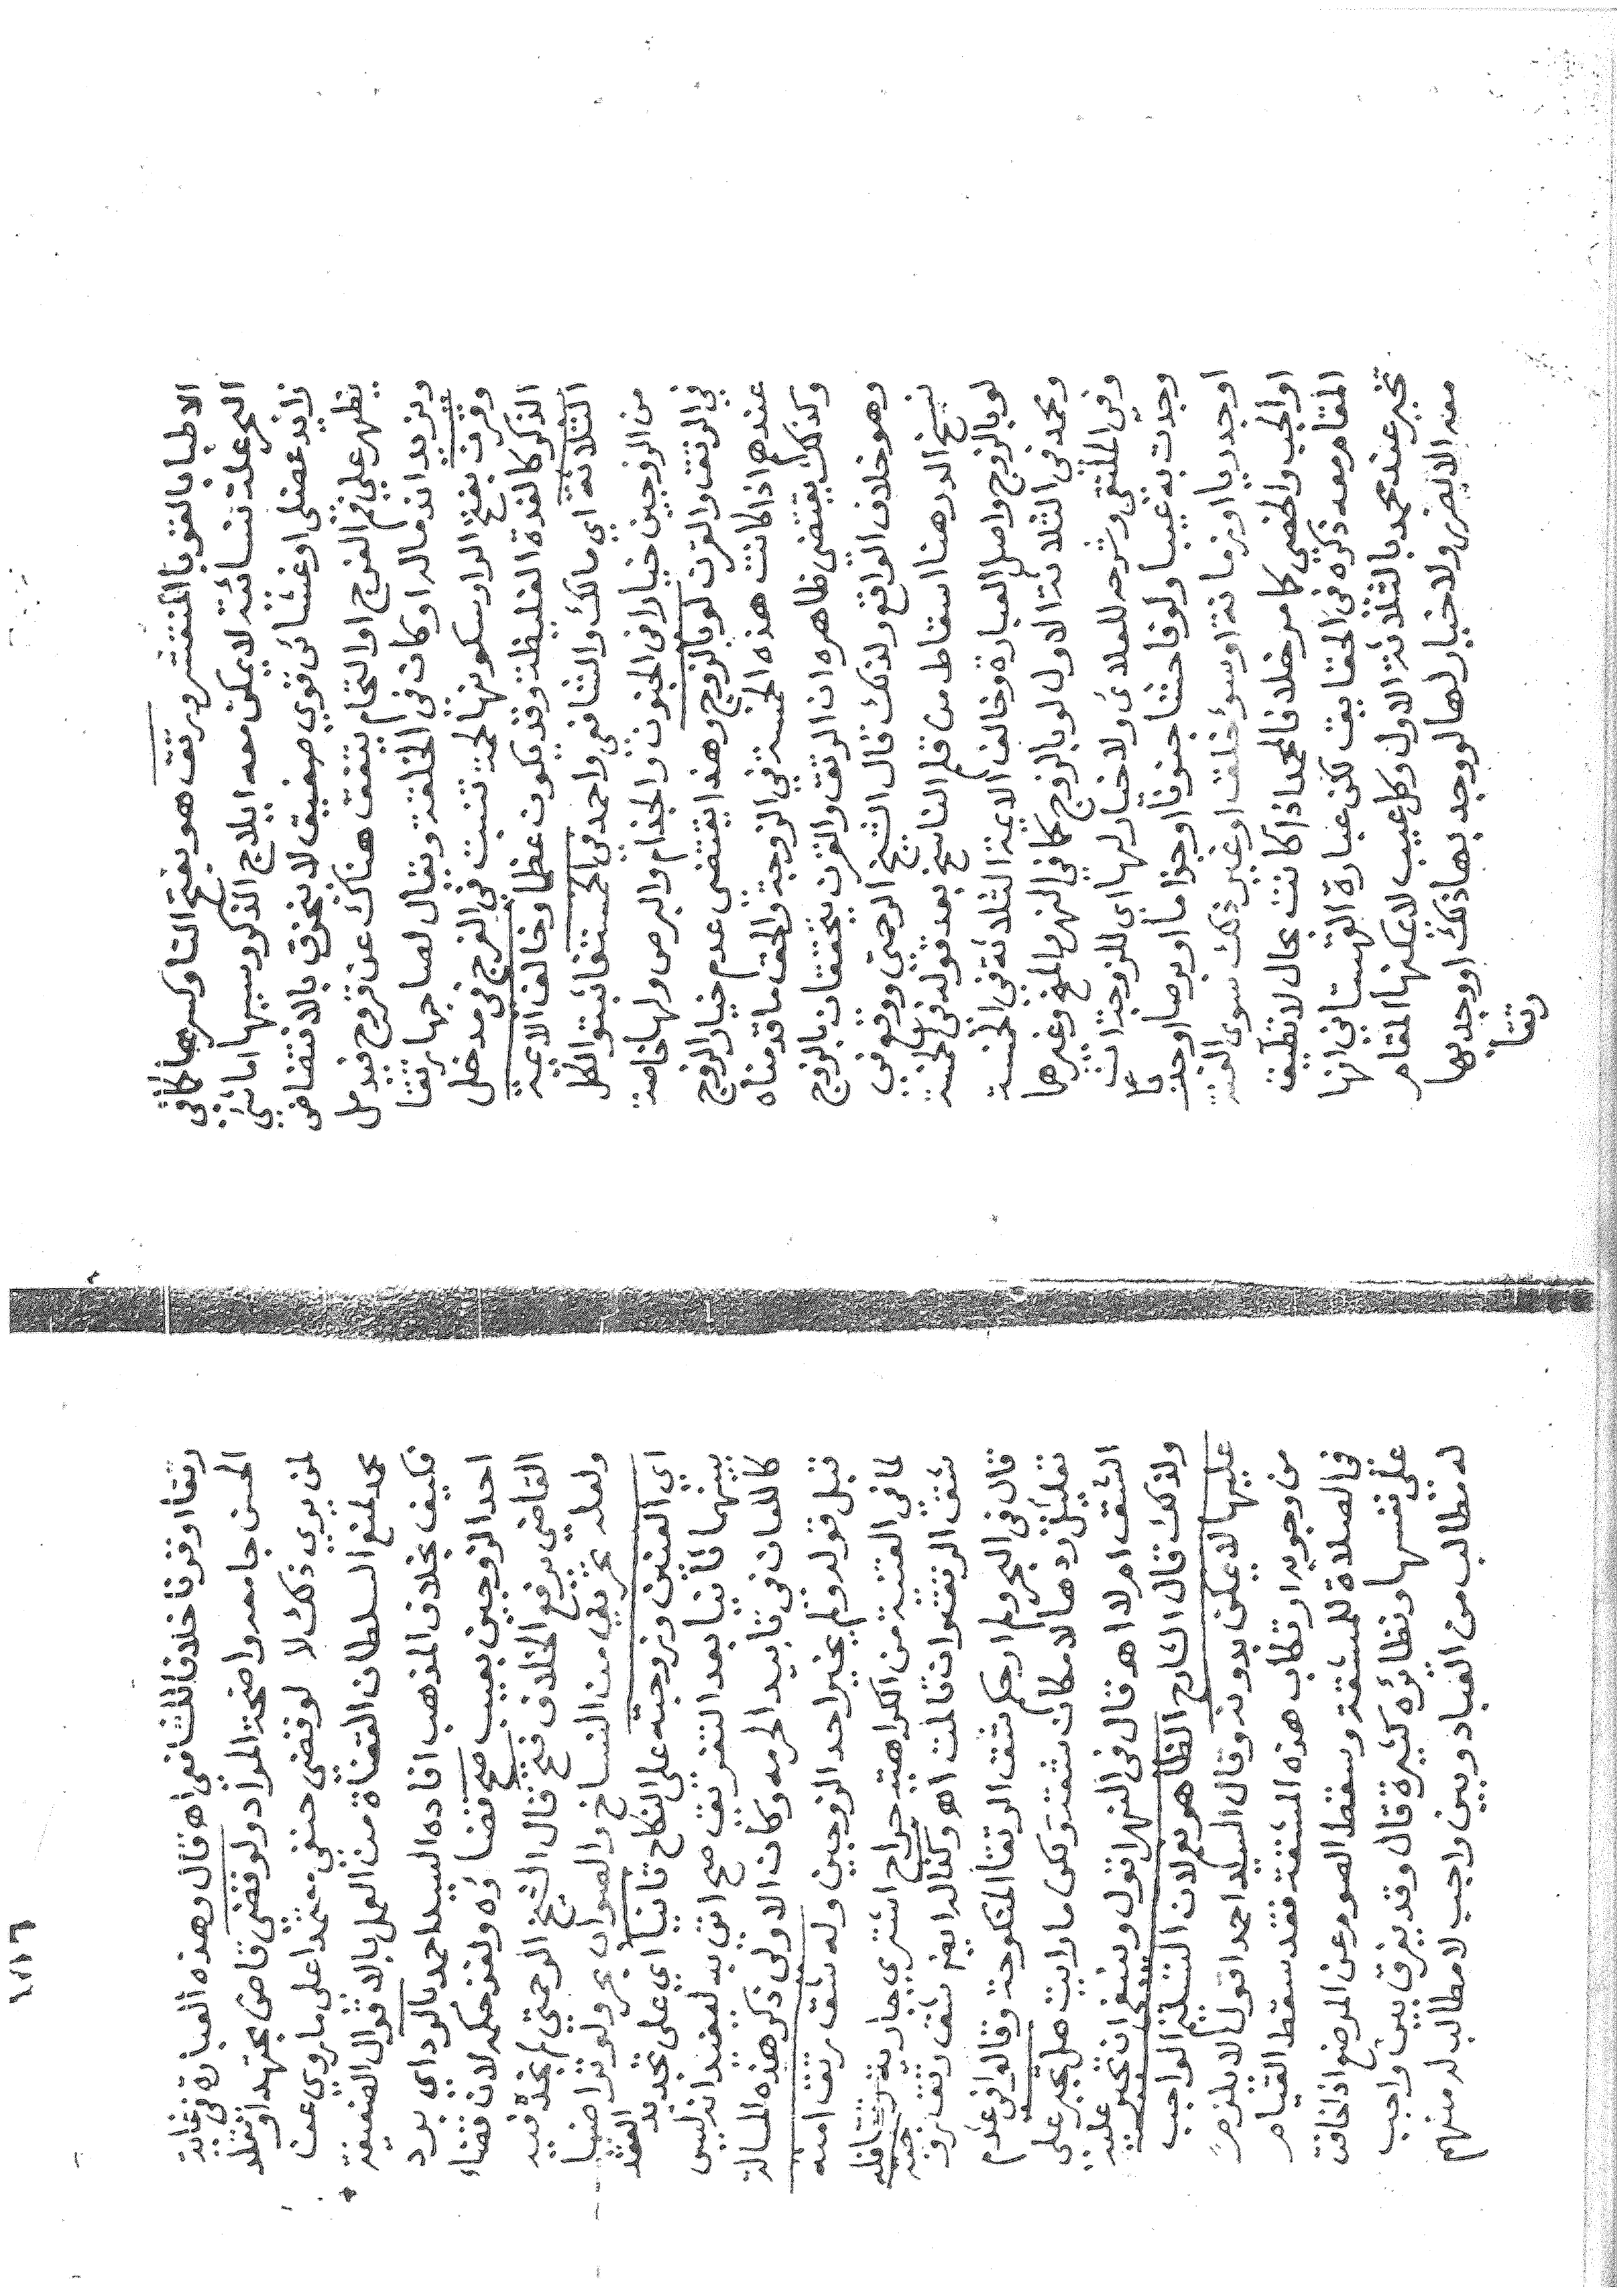 الاطبا بالقوبا المنتشر ورتق هو بفتح التا وكسرها كما في
البحر علة نسائية لا يمكن معه ايلاج الذكر وسببها اما شي
زايد عضلي او غشائي قوي صفيق لا ينخرق بالافتضاض
يظهر على فم الفرج او التحام يتفق هناك عن قروح فيدمل
ويزيد اندماله او كان في الخلقة ويقال لصاحبها رتقا
وقرن بفتح الراء وسكونها لحمة تنبت في الفرج في مدخل
الذكر كالغدة الغليظة وقد يكون عظما وخالف الايمة
الثلاثة اي مالك والشافعي واحمد في الخمسة فاثبتوا لكل
من الزوجين خيارا في الجنون والجذام والبرص ولها خاصة
في الرتق والقرن لو بالزوج وهذا يقتضي عدم خيار الزوج
عندها اذا كانت هذه الخمسة في الزوجة والحق ما قدمناه
وكذلك يقتضي ظاهره ان الرتق والقرن يتحققان بالزوج
وهو خلاف الواقع ولذلك قال الشيخ الرحمتي ووقع في
نسخ الدر هنا اسقاط من قلم الناسخ بعد قوله في الخمسة
لو بالزوج واصل العبارة وخالف الايمة الثلاثة في الخمسة
ومحمد في الثلاثة الاول لو بالزوج كما في النهر والمنح وغيرها
وفي الملتقى وشرحه للعلائ ولا خيار لها اي للزوجة ان
وجدت به عيبا ولو فاحشا جنونا او جذاما او برصا وحدبا
او جدريا او زمانة او سوء خلق او غير ذلك سوى العنة
او الجب والخصي كما مر خلافا لمحمد اذا كانت بحال لا تطيق
المقام معه ذكره في الحقايق لكن عبارة القهستاني انها
تخير عند محمد بالثلاثة الاول وكل عيب لا يمكنها المقام
معه الا بضرر ولا خيار لها لو وجد بها ذلك او وجد بها
رتقاً
رتقا او قرنا خلافا للشافعي اه قال وهذه العبارة في غاية
الحسن جامعه واضحة المراد ولو قضى قاض مجتهد او مقلد
لمن يرى ذلك لا لو قضى حنفي معتمدا على ما روي عن
محمد لمنع السلطان القضاة من العمل بالاقوال الضعيفة
فكيف بخلاف المذهب افاده السيد احمد بالرد اي برد
احد الزوجين بعيب صح قضاؤه ونفذ حكمه لان قضاء
القاضي يرفع الخلاف فتح قال الشيخ الرحمتي لم نجده فيه
ولعله تحريف من النساخ والصواب بحر ولو تراضيا
اي العنين وزوجته على النكاح ثانيا اي على تجديد العقد
بينهما ثانيا بعد التفريق صح اتى به ليفيد انه ليس
كاللعان في تابيد الحرمه وكان الاولى ذكر هذه المسالة
قبل قوله ولم يخير احد الزوجين وله شق رتق امته
لما في العنة من الكراهية جراح اشترى جارية رتقا فله
شق الرتق وان تالمت اه وكذا له ايضا شق رتق زوجته
قال في البحر ولم ار حكم شق الرتقا المنكوحة وقالوا في عدم
تعليل ردها لامكان شقه لكن ما رايت هل تجبر على
الشق ام لا اه قال في النهر اقول وينبغي ان تجبر عليه
ولذلك قال الشارح الظاهر نعم لان التسليم الواجب
عليها لا يمكن بدونه وقال السيد احمد اقول لا يلزم
من وجوبه ارتكاب هذه المشقة فقد سقط القيام
في الصلاة للمشقة وسقط الصوم عن المرضع اذا خافت
على نفسها ونظائره كثيرة قال وقد يفرق بين واجب
له مطالب من العباد وبين واجب لا مطالب له منهم